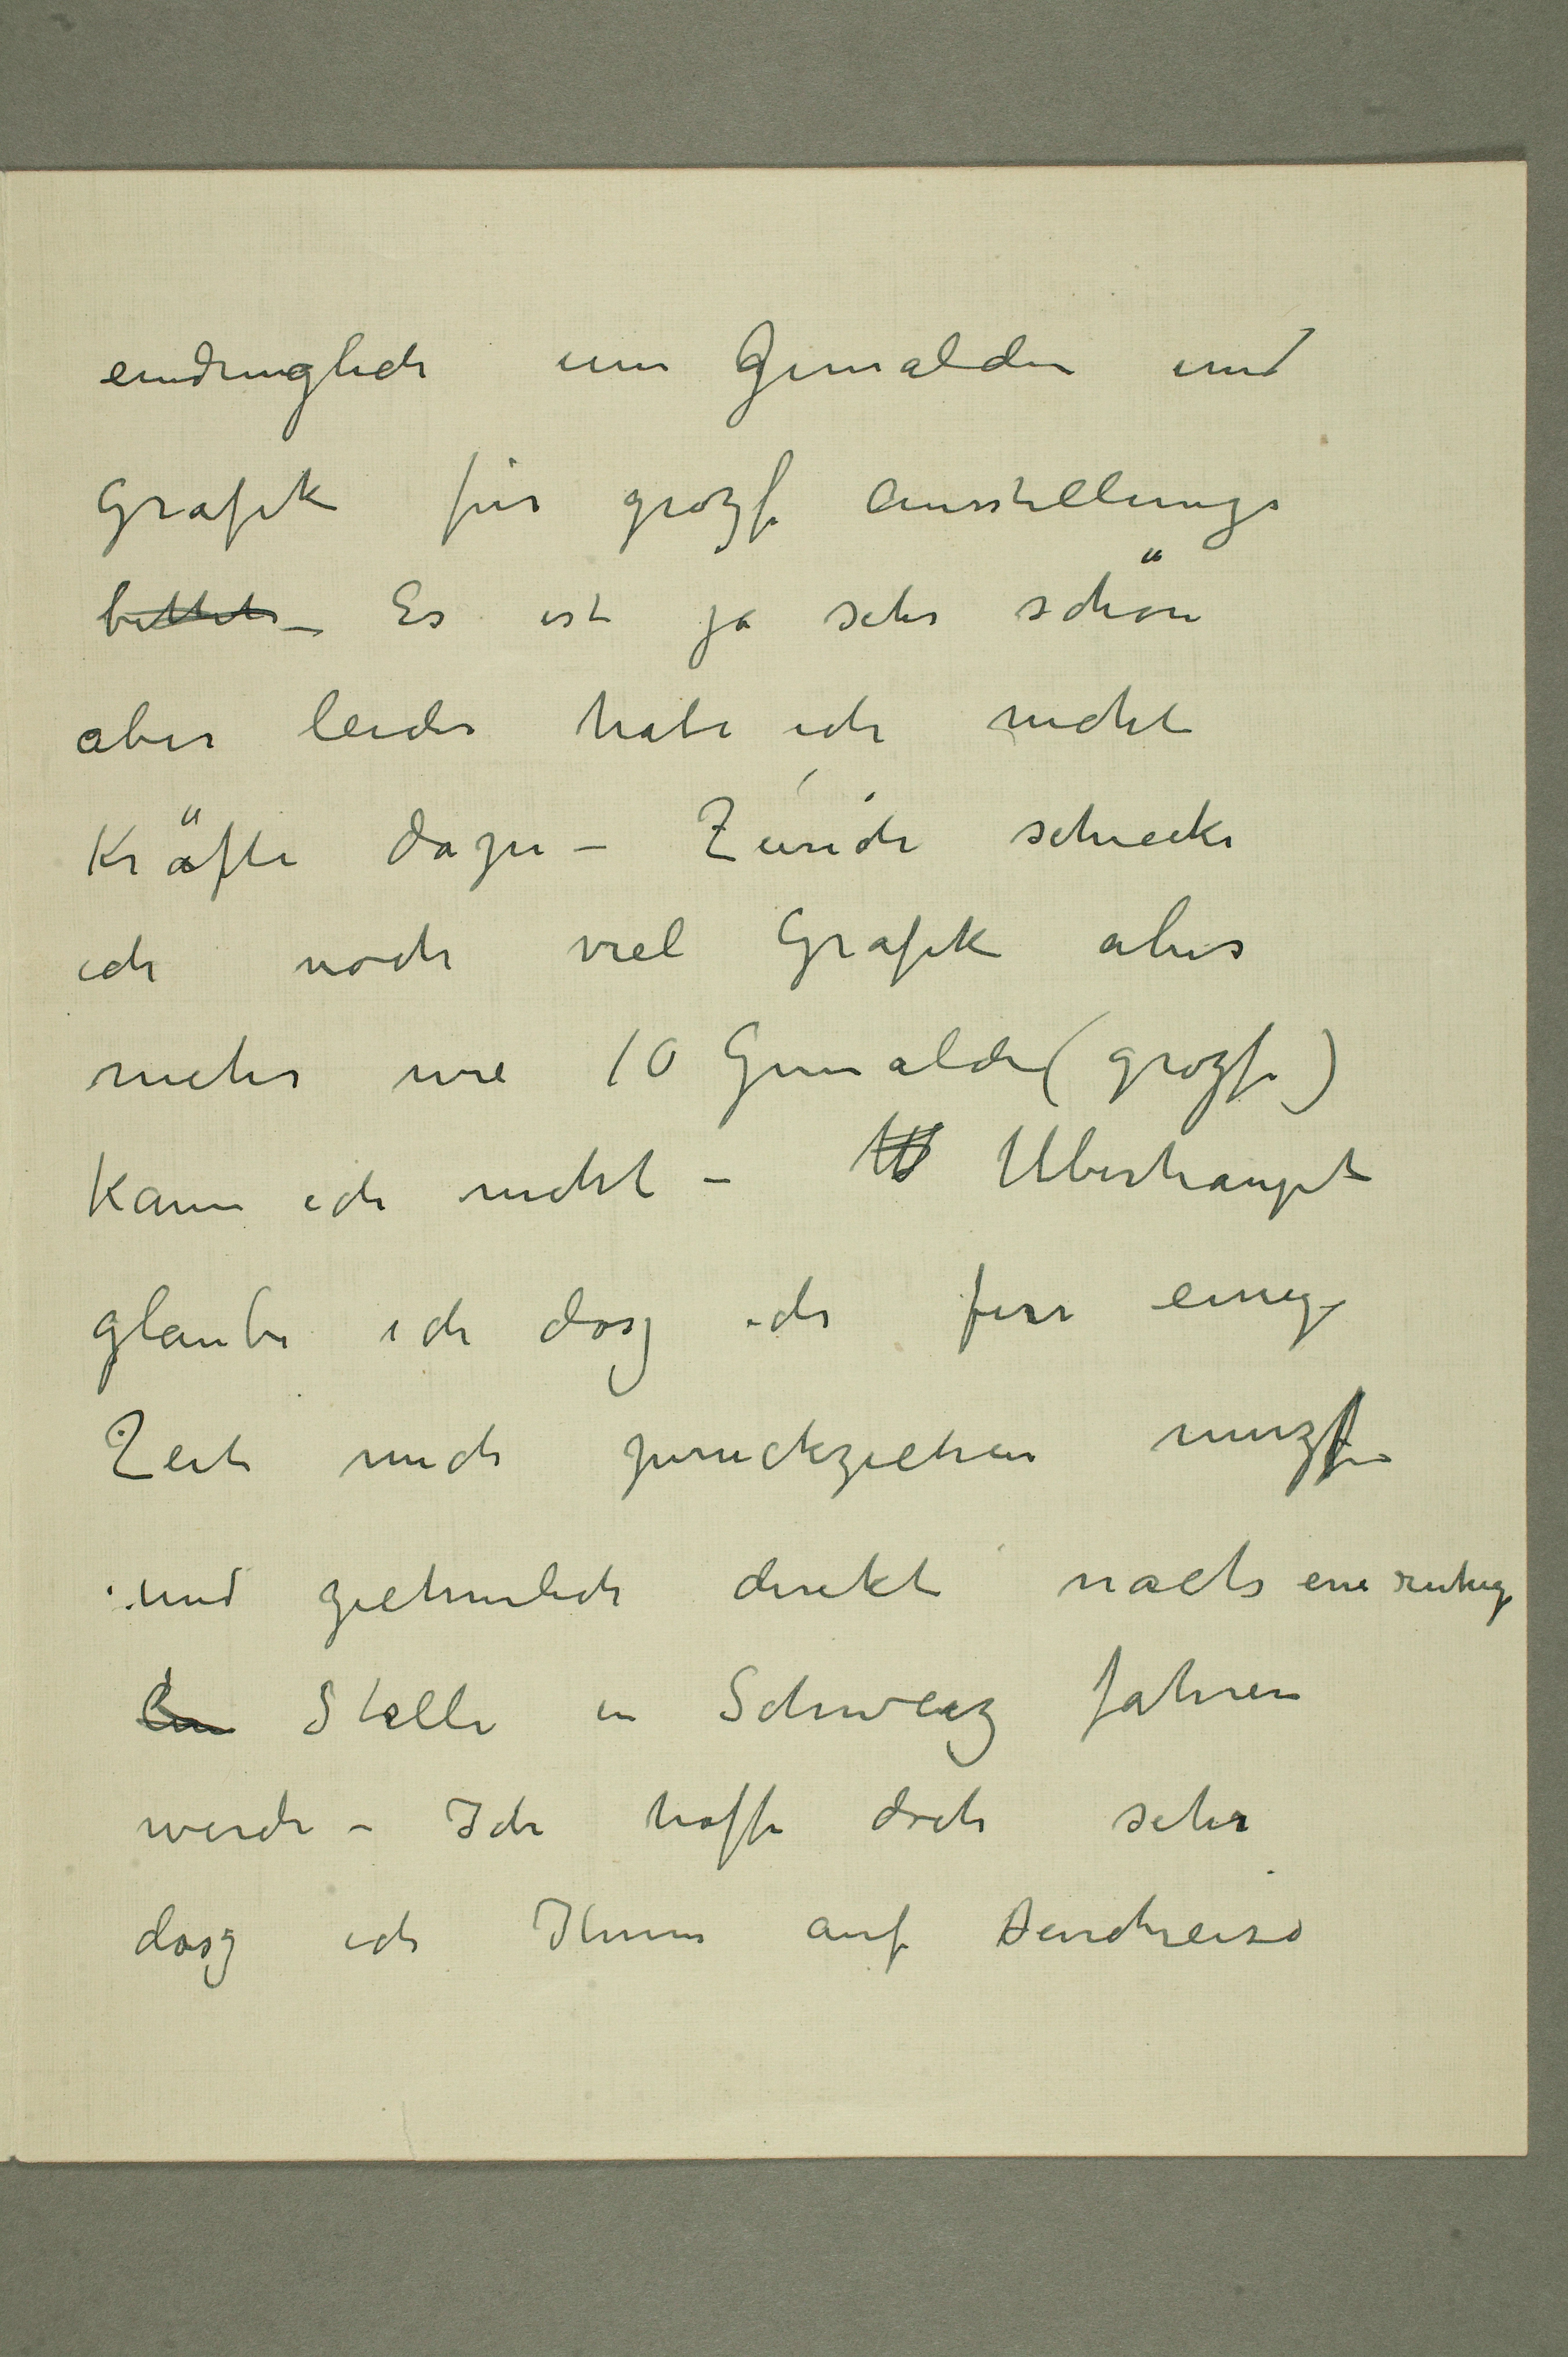 eindringlich um Gemälden und
Grafik für grozse Ausstellunge
bittet – Es ist ja sehr schön
aber leider habe ich nicht
Kräfte dazu – Zürich schicke
ich noch viel Grafik aber
mehr wie 10 Gemälde (grozse)
kann ich nicht – Uberhaupt
glaube ich dasz ich fur einige
Zeit mich zuruckziehen muzs
und ziehmlich direkt nach eine ruhige
Stelle in Schweiz fahren
werde – Ich hoffe doch sehr
dasz ich Ihnen auf